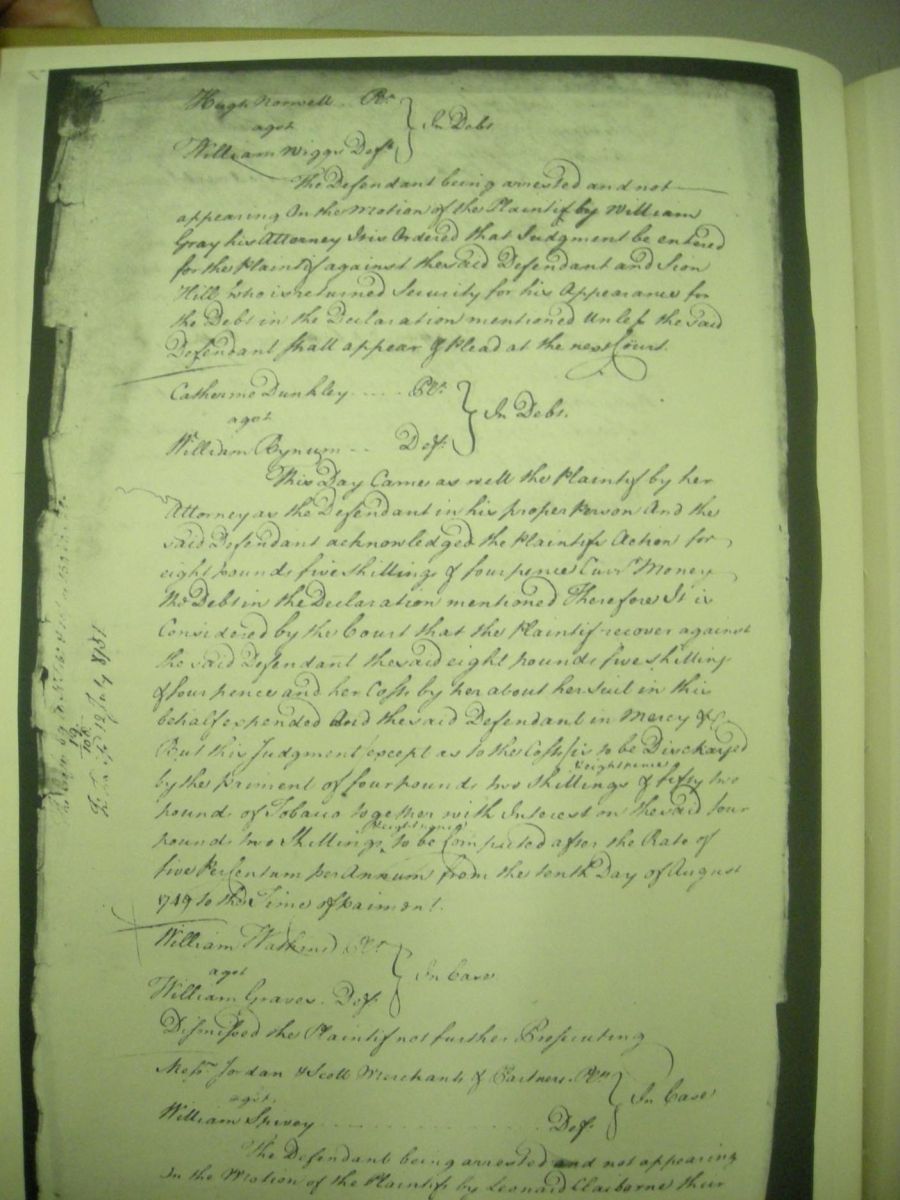 Hugh Norvell Plt.
agst
William Wiggs Deft.
In Debt
The Defendant being arrested and not
appearing On the Motion of the Plaintif by William
Gray his Attorney It is Ordered that Judgment be entered
for the Plaintif against the said Defendant and Sion
Hill who is returned Security for his Appearance for
the Debt in the Declaration mentioned Unless the said
Defendant shall appear & Plead at the next Court.
Catherine Dunkley ..... Plt.
agst
William Bynum ... Deft.
In Debt.
This Day Came as well the Plaintif by her
Attorney as the Defendant in his proper Person And the
said Defendant acknowledged the Plaintifs Action for
eight pounds five shillings & four pence Curr. Money
the Debt in the Declaration mentioned Therefore It is
Considered by the Court that the Plaintif recover against
the said Defendant the said eight pounds five shillings
& four pence and her Costs by her about her Suit in this
behalf expended And the said Defendant in Mercy &c
But this Judgment except as to the Costs is to be Discharged
by the paiment of four pounds two shillings & eight pence & fifty two
pounds of Tobacco together with Interest on the said four
pounds two Shillings & eight pence to be Computed after the Rate of
five Per Centum per Annum from the tenth Day of August
1749 to the Time of paiment.
William Watkins Plt.
agst
William Graves. Deft.
In Case
Dismissed the Plaintif not further Prosecuting
Messrs. Jordan & Scott Merchants & Partners. Plts
agst.
William Spivey .............. Deft.
In Case
The Defendant being arrested and not appearing
On the Motion of the Plaintifs by Leonard Claiborne their
12 July 1751